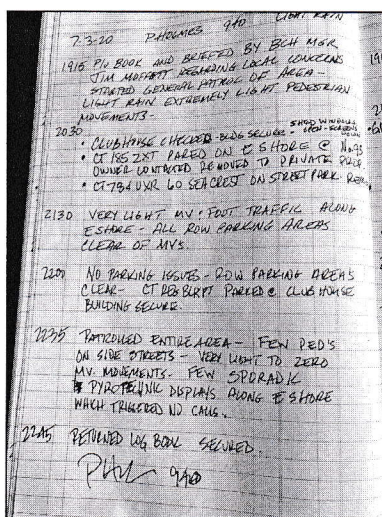 LIGHT RAIN
7-3-20 PHOLMES 940
1915 P/U BOOK AND BRIEFED BY BCH MGR
JIM MOFFATT REGARDING LOCAL CONCERNS
STARTED GENERAL PATROL OF AREA-
LIGHT RAIN EXTREMELY LIGHT PEDESTRIAN
MOVEMENTS-
2030
• CLUBHOUSE CHECKED-BLDG SECURE - SHED WINDOWS OPEN - SCREENS DOWN
• CT 185 ZXT PARED ON E SHORE @ No. 93
OWNER CONTACTED REMOVED TO PRIVATE
• CT-734 UXR 60 SEACREST ON STREET PARK
2130 VERY LIGHT MV: FOOT TRAFFIC ALONG
E SHORE - ALL ROW PARKING AREAS
CLEAR OF MVS.
2200 NO PARKING ISSUES - ROW PARKING AREAS
CLEAR- CT REG PARKED @ CLUB HOUSE
BUILDING SECURE.
2235 PATROLLED ENTIRE AREA - FEW PED'S
ON SIDE STREETS - VERY LIGHT TO ZERO
MV. MOVEMENTS. FEW SPORADIC
PYROTECHNIC DISPLAYS ALONG E SHORE
WHICH TRIGGERED NO CALLS.
2245 RETURNED LOG BOOK SECURED.
940